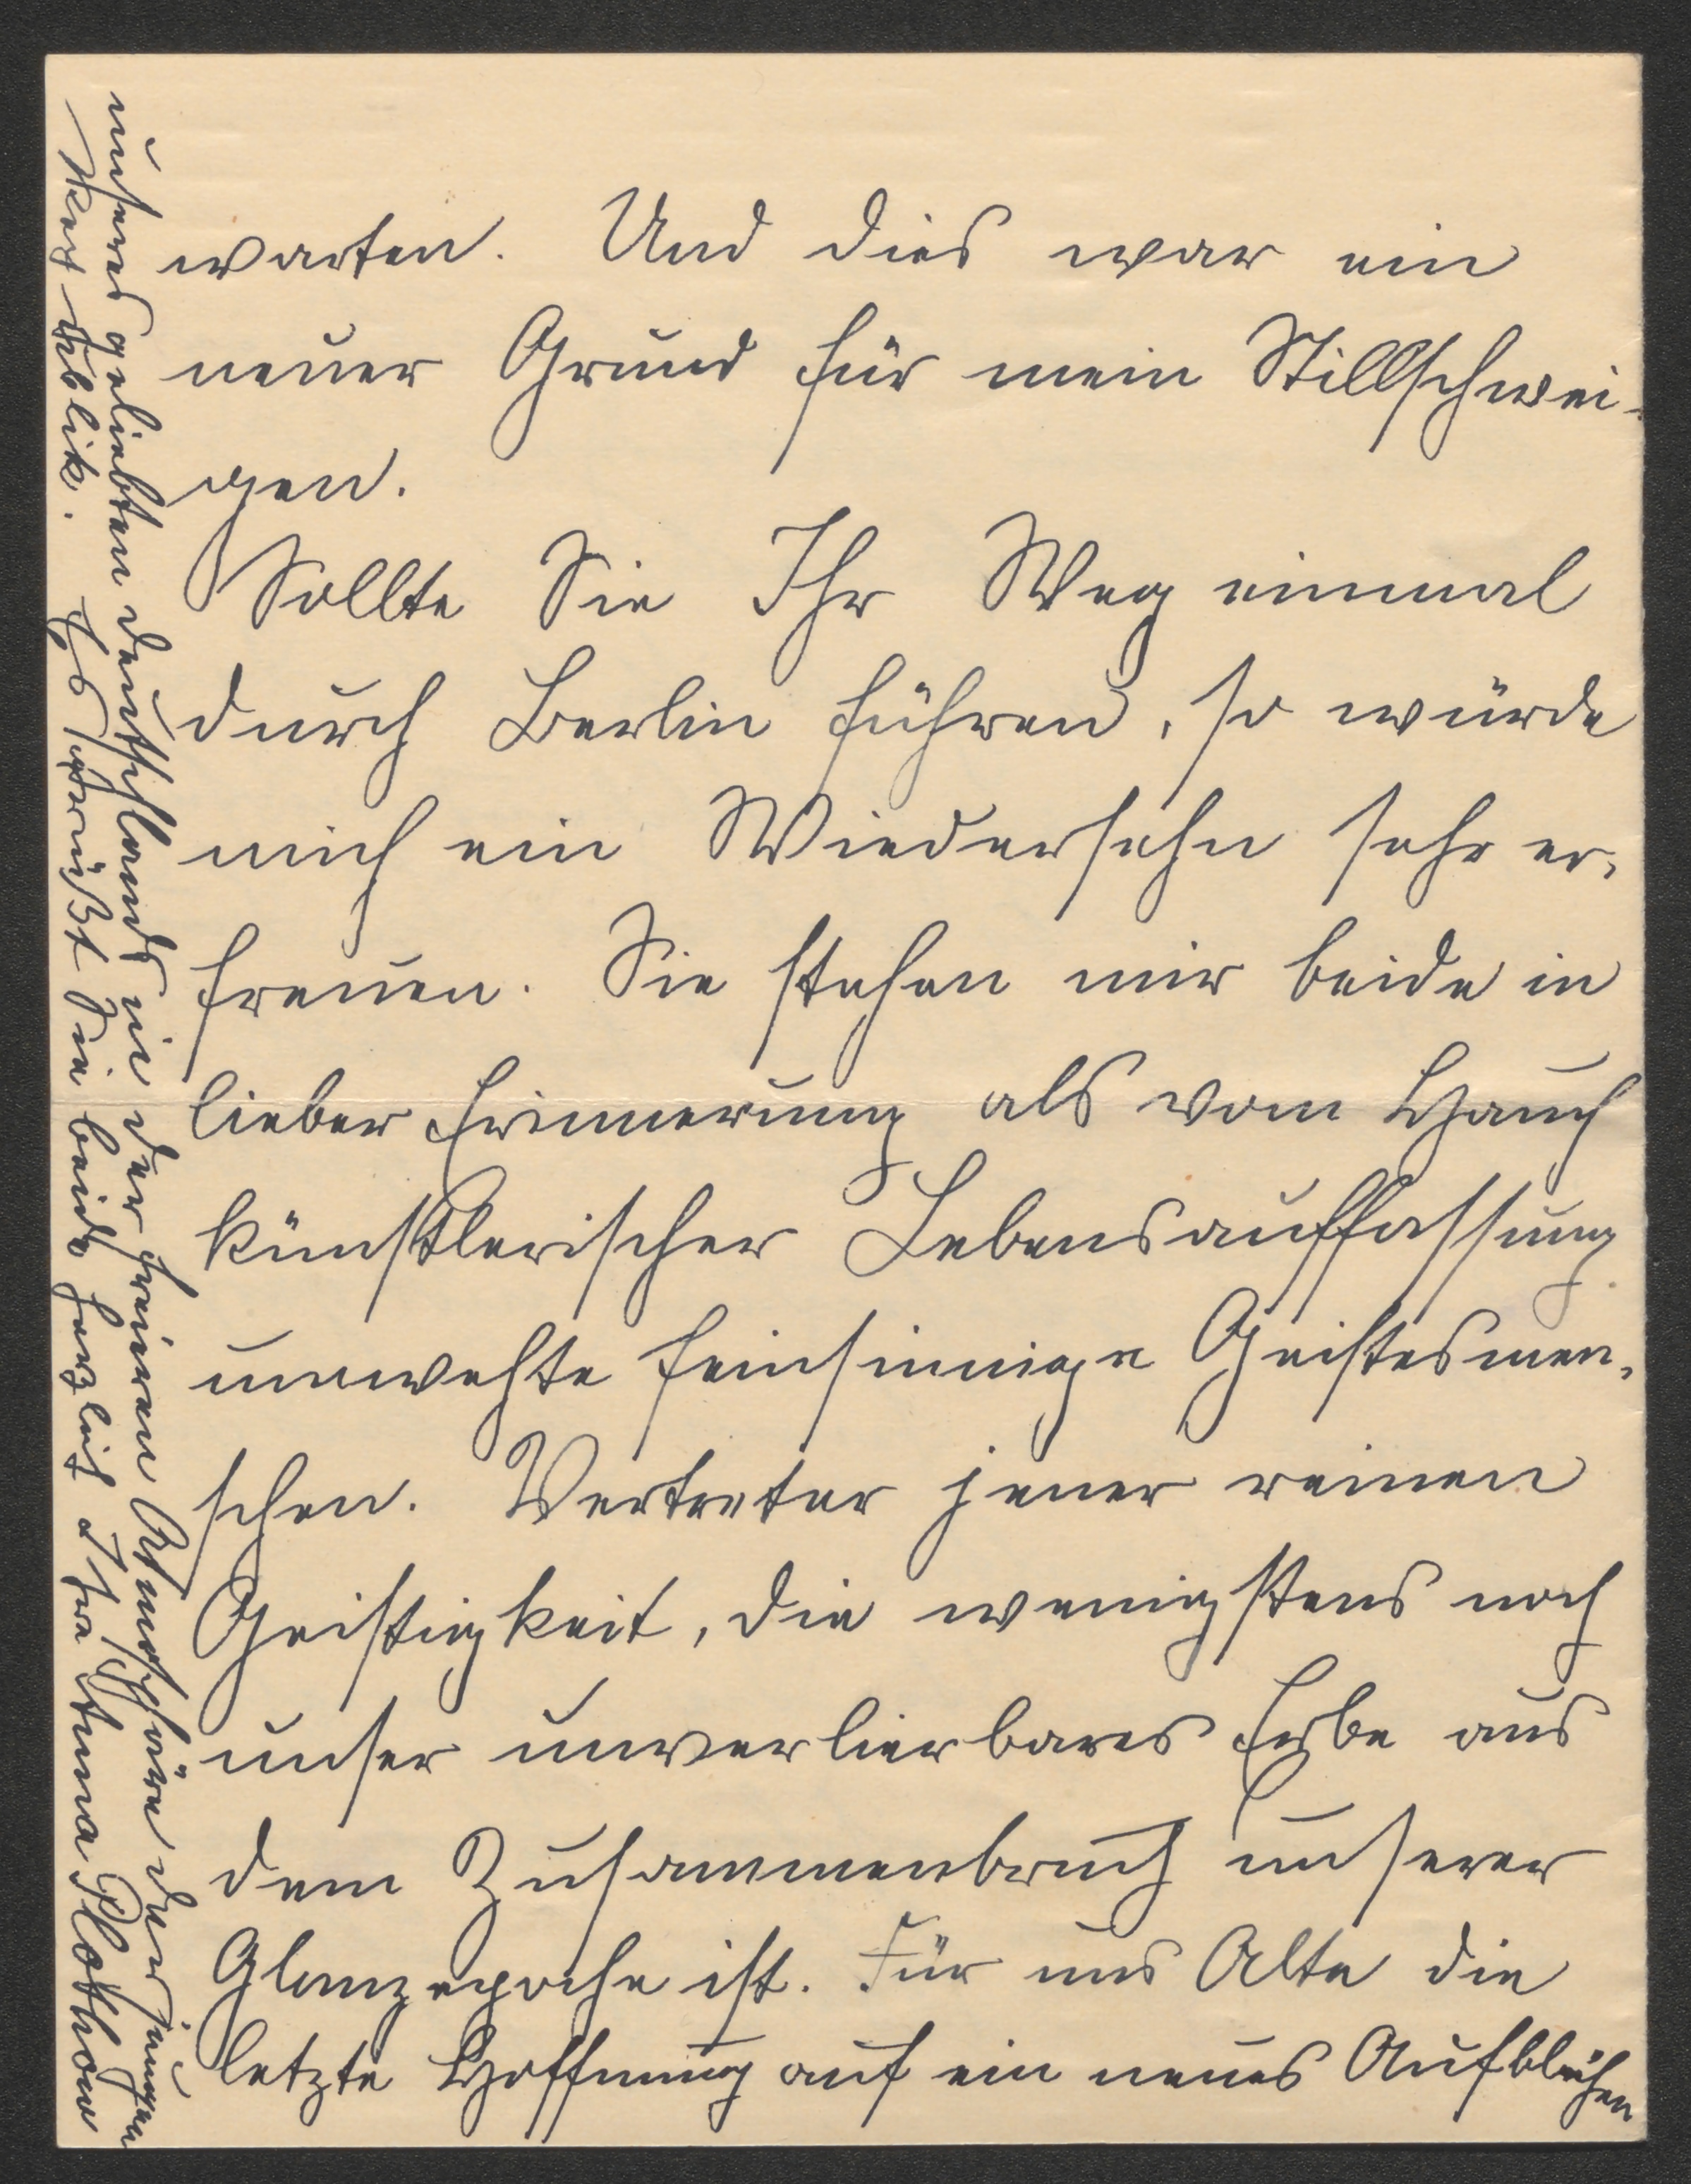 warten. Und dies war ein
neuer Grund für mein Stillschwei-
gen.
Sollte Sie Ihr Weg einmal
durch Berlin führen, so würde
mich ein Wiedersehn sehr er-
freuen. Sie stehen mir beide in
lieber Erinnerung als vom Hauch
künstlerischer Lebensauffassung
umwehte feinsinnige Geistesmen-
schen. Vertreter jener reinen
Geistigkeit, die wenigstens noch
unser unverlierbares Erbe aus
dem Zusammenbruch unserer
Glanzepoche ist. Für uns Alte die
letzte Hoffnung auf ein neues Aufblühen
unseres geliebten Deutschlands in der freieren Atmosphäre der jungen
Republik. Es grüßt Sie beide herzlich Ihre Anna Plothow